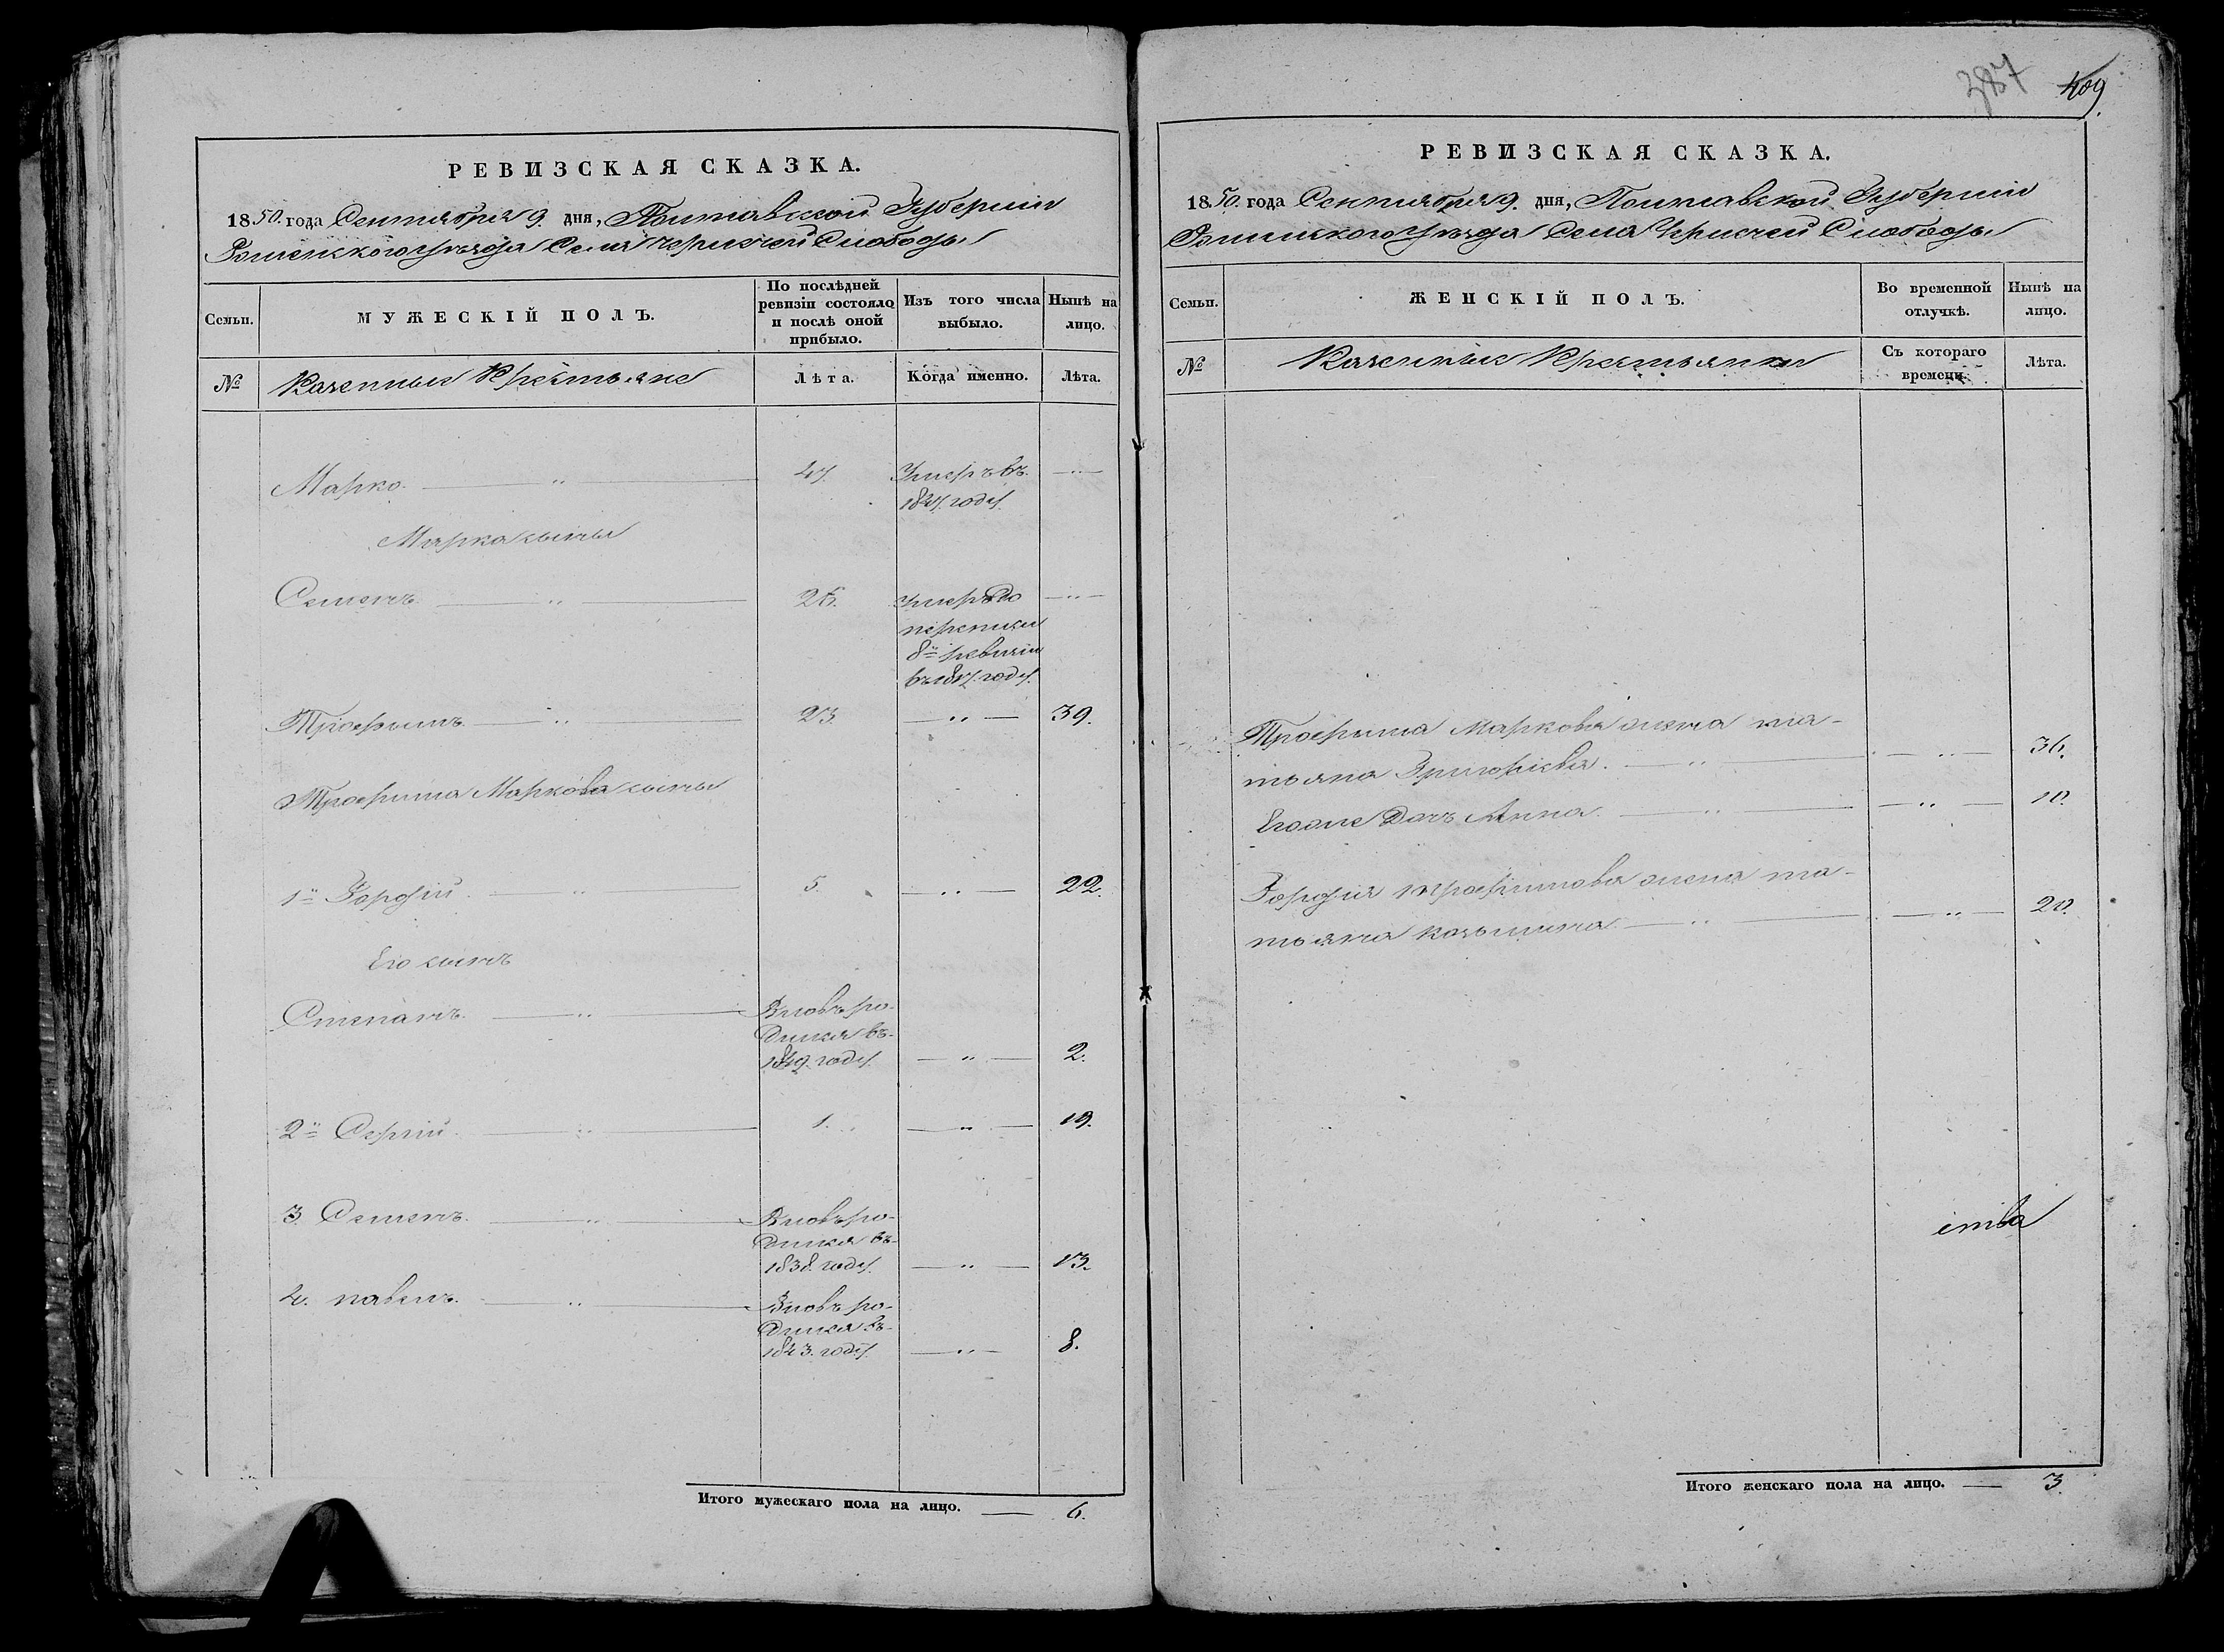 РЕВИЗСКАЯ СКАЗКА.
1850. года Сентября 9. дня, Полтавской Губернии
Роменскаго уезда Села Чернечей Слободы
Семьи.
МУЖЕСКІЙ ПОЛЪ.
По послѣдней
ревизіи состояло
и послѣ оной
прибыло.
Изъ того числа
выбыло.
Нынѣ на
лицо.
№
Казенные Крестьяне
Лѣта.
Когда именно.
Лѣта.
Марко. — „ — 47. Умеръ въ — „ —
184 году.
Марка сыны
Семенъ. — „ — 26. умеръ до — „ —
переписи
8й ревизіи
въ году.
Трофимъ — „ — 23 — „ — 39.
Трофима Маркова сыны
1й Гордій — „ — 5. — „ — 22.
Его сынъ
Степанъ. — „ — Вновь ро-
дился въ-
1849. году. — „ — 2.
2й Сергій. — „ — 1. — „ — 19.
3 Семенъ. — „ — Вновь ро-
дился въ-
1838. году. — „ — 13.
4. павелъ. — „ — Вновь ро-
дился въ-
1843. году. — „ — 8.
Итого мужескаго пола на лицо. — 6.
387 409.
РЕВИЗСКАЯ СКАЗКА.
1850. года Сентября 9. дня, Полтавской Губерніи
Роменскаго уезда Села Чернечей Слободы
Семьи.
ЖЕНСКІЙ ПОЛЪ.
Во временной
отлучкѣ.
Нынѣ на
лицо.
№
Казенные Крестьянки
Съ котораго
времени.
Лѣта.
Трофима Маркова жена та-
тьяна Григорієва. — „ — — „ — 36.
Егоже Дочь Анна. — „ — — „ — 10.
Гордія трофимова жена та-
тьяна козьмина — „ — — „ — 20.
Итого женскаго пола на лицо. — 3.